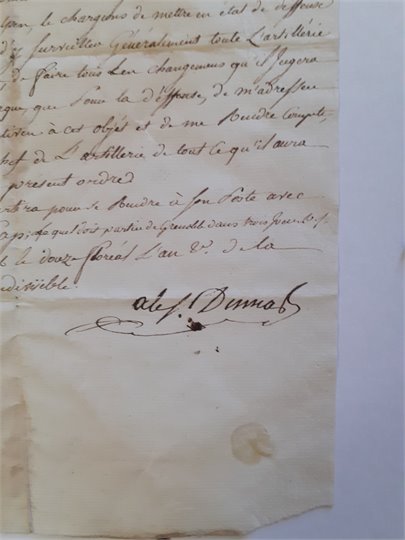 le chargeons de mettre en état de deffense
Surveiller Généralement toute L'artillerie
de faire tous Les changemens qu'il Jugera
que Pour la déffense, de m'adresser
à cet objet et de me Rendre Compte,
de L'artillerie de tout Ce qu'il aura
présent ordre
pour se Rendre à Son Poste avec
partie de Grenoble dans trois Jours
le douze floréal L'an 2.e de la
indivisible.
Alex. Dumas